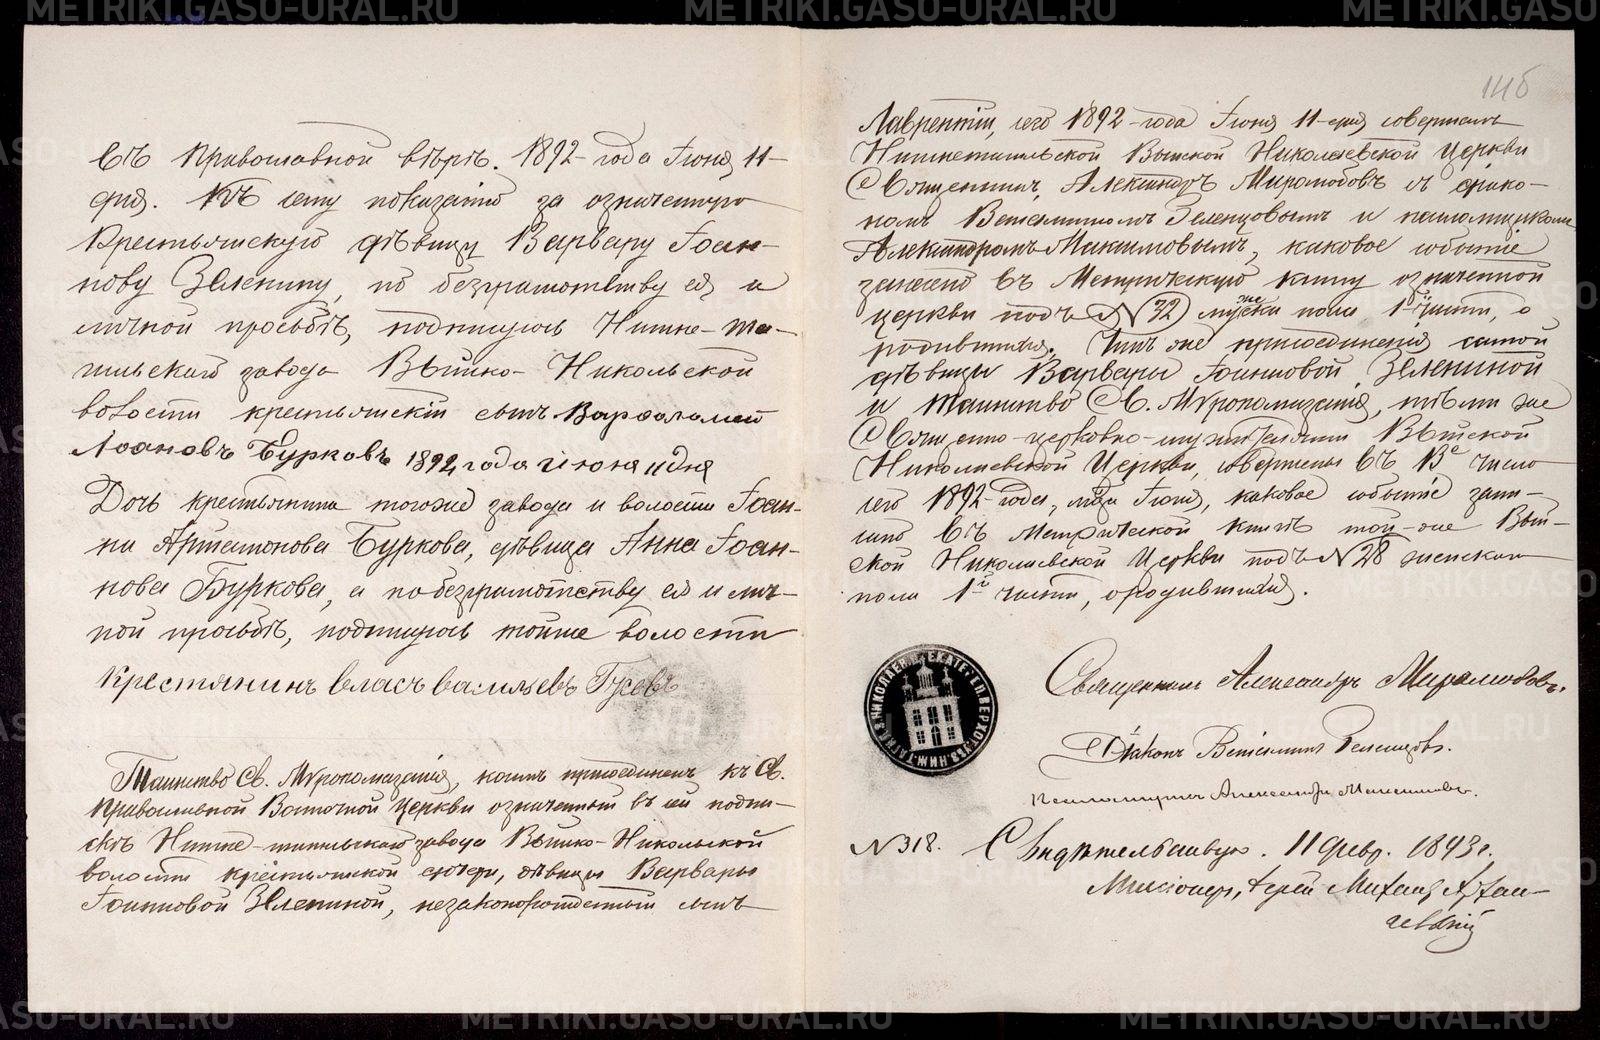 въ Православной вѣрѣ. 1892-года Іюня 11-
дня. Къ сему показанію за означенную
Крестьянскую дѣвицу Варвару Іоан-
нову Зеленину, по безграмотству ея и
личной просьбѣ, подпишусь Нижне-та-
гильскаго завода Выйско-Никольской
волости крестьянскій сынъ Варфоломей
Іоановъ Бурковъ 1892 года июня 11 дня
Дочь крестьянина тогоже завода и волости Іоан-
на Артамонова Буркова, дѣвица Анна Іоан-
нова Буркова, а по безграмотству ея и лич-
ной просьбѣ, подпишусь тойже волости
Крестянинъ Власъ Васильевъ Гусевъ
Таинство Св. Мѵропомазанія, коимъ присоединенъ къ Св.
Православной Восточной Церкви означенный въ сей подпи-
скѣ Нижне-тагильскаго завода Выйско-Никольской
волости крестьянской дочери, дѣвицы Варвары
Іоанновой Зелениной, незаконорожденный сынъ
1116
Лаврентій, сего 1892-года Іюня 11-дня совершалъ
Нижнетагильской Выйской Николаевской Церкви
Священникъ Александръ Миролюбовъ съ діако-
номъ Веніаминомъ Зеленцовымъ и псаломщикомъ
Александромъ Максимовымъ, каковое событіе
записано въ Метрическую книгу означенной
церкви подъ № 72) мужска пола 1й части, о
родившихся. Чинъ же присоединенія самой
дѣвицы Варвары Іоанновой Зелениной
и таинство Св. Мѵропомазанія, тѣми же
Священно-церковно-служителями Выйской
Николаевской Церкви, совершены въ 13е число
сего 1892-года, м-ца Іюня, каковое событіе запи-
сано въ Метрической книгѣ той-же Вый-
ской Николаевской Церкви подъ № 28 женскаго
пола 1й части, о родившихся.
Священникъ Александръ Миролюбовъ.
Діаконъ Веніаминъ Зеленцовъ.
Псаломщикъ Александръ Максимовъ.
№ 318. Свидѣтельствую. 11 февр. 1893 г.
Миссіонеръ, Іерей Михаилъ
METRIKI.GASO-URAL.RU